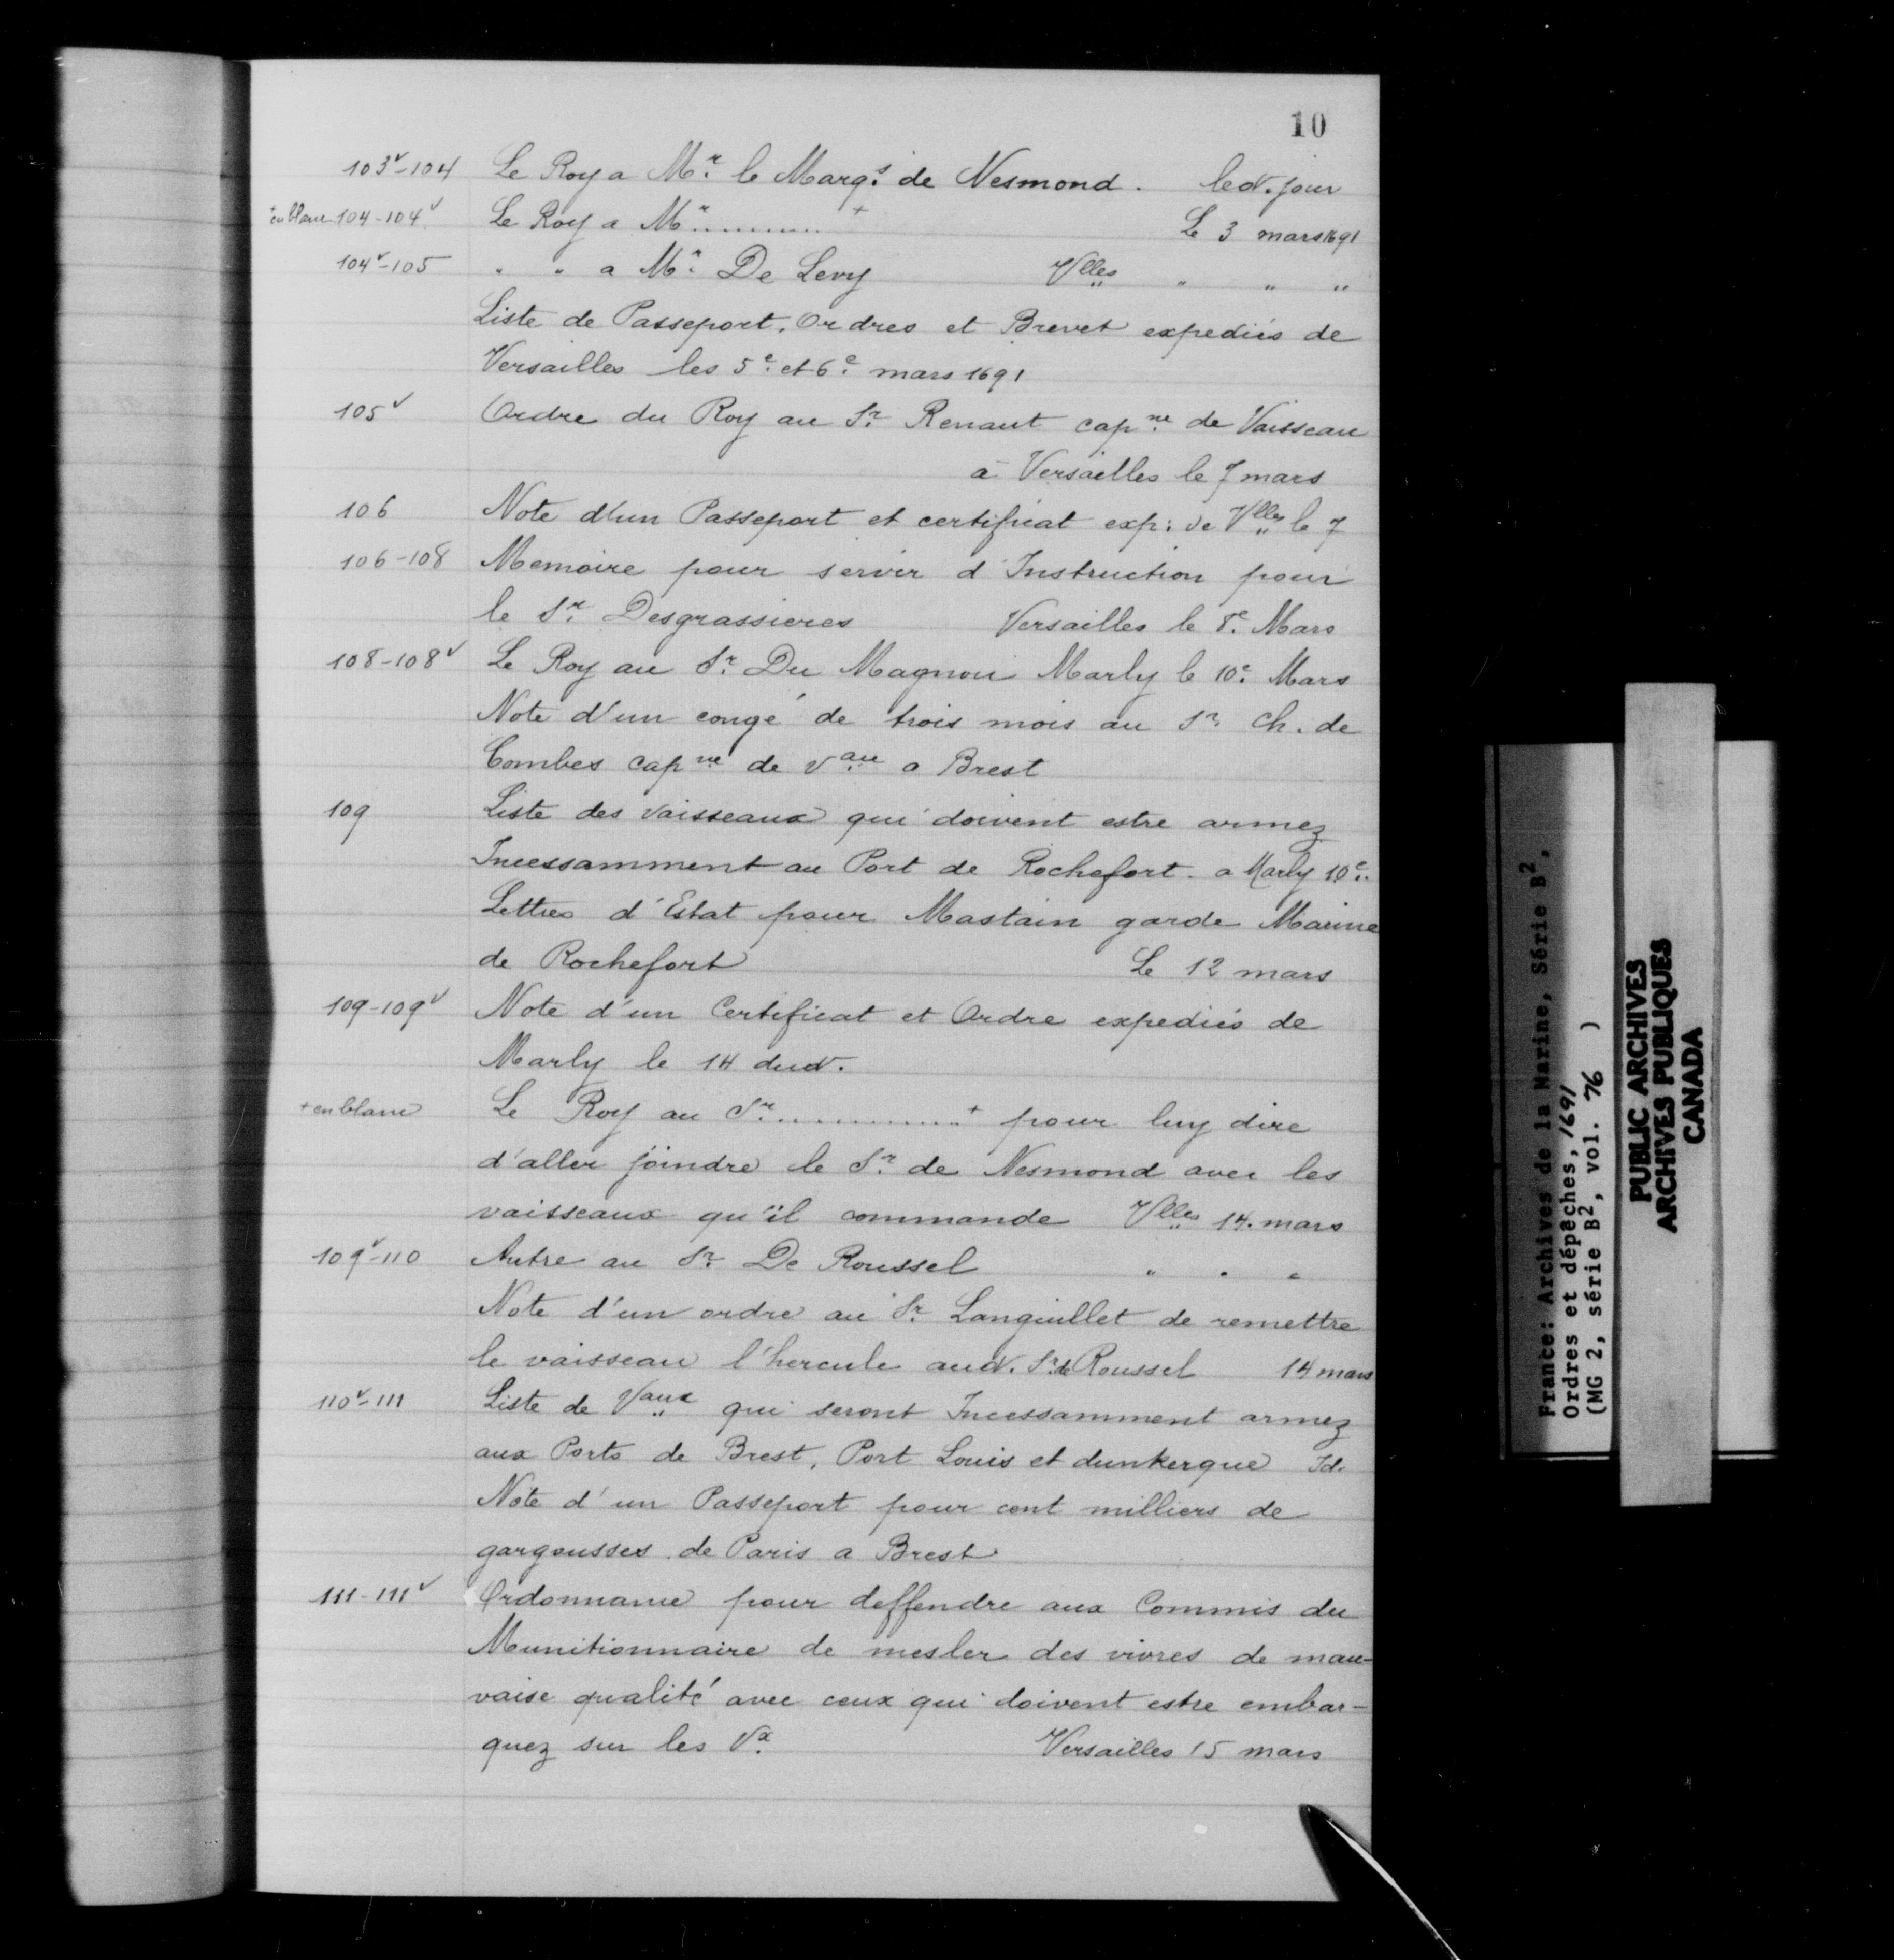 10
103v-104 Le Roy a Mr. le Marqs. de Nesmond. led. jour
+en blanc 104-104v Le Roy a Mr. ........ + Le 3 mars 1691
104v-105 " " a Mr. De Levy Vlles " " "
Liste de Passeport, Ordres et Brevet expediés de
Versailles les 5e. et 6e. mars 1691
105v Ordre du Roy au Sr. Renaut capne. de Vaisseau
à Versailles le 7 mars
106 Note d'un Passeport et certificat exp: de Vlles le 7
106-108 Memoire pour servir d'Instruction pour
le Sr. Desgrassieres Versailles le 8e. Mars
108-108v Le Roy au Sr. Du Magnou Marly le 10e. Mars
Note d'un congé de trois mois au Sr. Ch. de
Combes capne de vau a Brest
109 Liste des vaisseaux qui doivent estre armez
Incessamment au Port de Rochefort. a Marly 10e.
Lettres d'Estat pour Mastain garde Marine
de Rochefort Le 12 mars
109-109v Note d'un Certificat et Ordre expediés de
Marly le 14 dud.
+en blanc Le Roy au Sr. ............ + pour luy dire
d'aller joindre le Sr. de Nesmond avec les
vaisseaux qu'il commande Vlles 14. mars
109v-110 Autre au Sr. De Roussel " " "
Note d'un ordre au Sr. Languillet de remettre
le vaisseau l'hercule aud. Sr. de Roussel 14 mars
110v-111 Liste de Vaux qui seront Incessamment armez
aux Ports de Brest, Port Louis et dunkerque Id.
Note d'un Passeport pour cent milliers de
gargousses de Paris a Brest
111-111v Ordonnance pour deffendre aux Commis du
Munitionnaire de mesler des vivres de mau-
vaise qualité avec ceux qui doivent estre embar-
quez sur les Vx. Versailles 15 mars
France: Archives de la Marine, Série B2,
Ordres et dépêches, 1691
(MG 2, série B2, vol. 76 )
PUBLIC ARCHIVES
ARCHIVES PUBLIQUES
CANADA